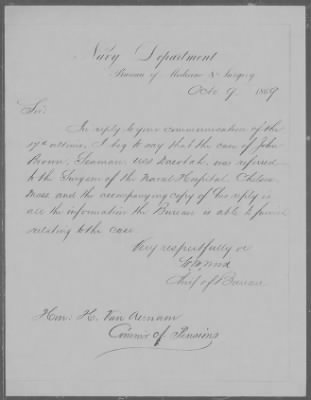 Navy Department
Bureau of Medicine & Surgery
Octo 9, 1869
Sir:
In reply to your communication of the
17th ultimo, I beg to say that the case of John
Brown, Seaman, USS Dacotah, was referred
to the Surgeon of the Naval Hospital, Chelsea
Mass. and the accompanying copy of his reply is
all the information the Bureau is able to furnish
relating to the case.
Very respectfully &c
Chief of Bureau
Hon: H. Van Aernam
Commr of Pensions